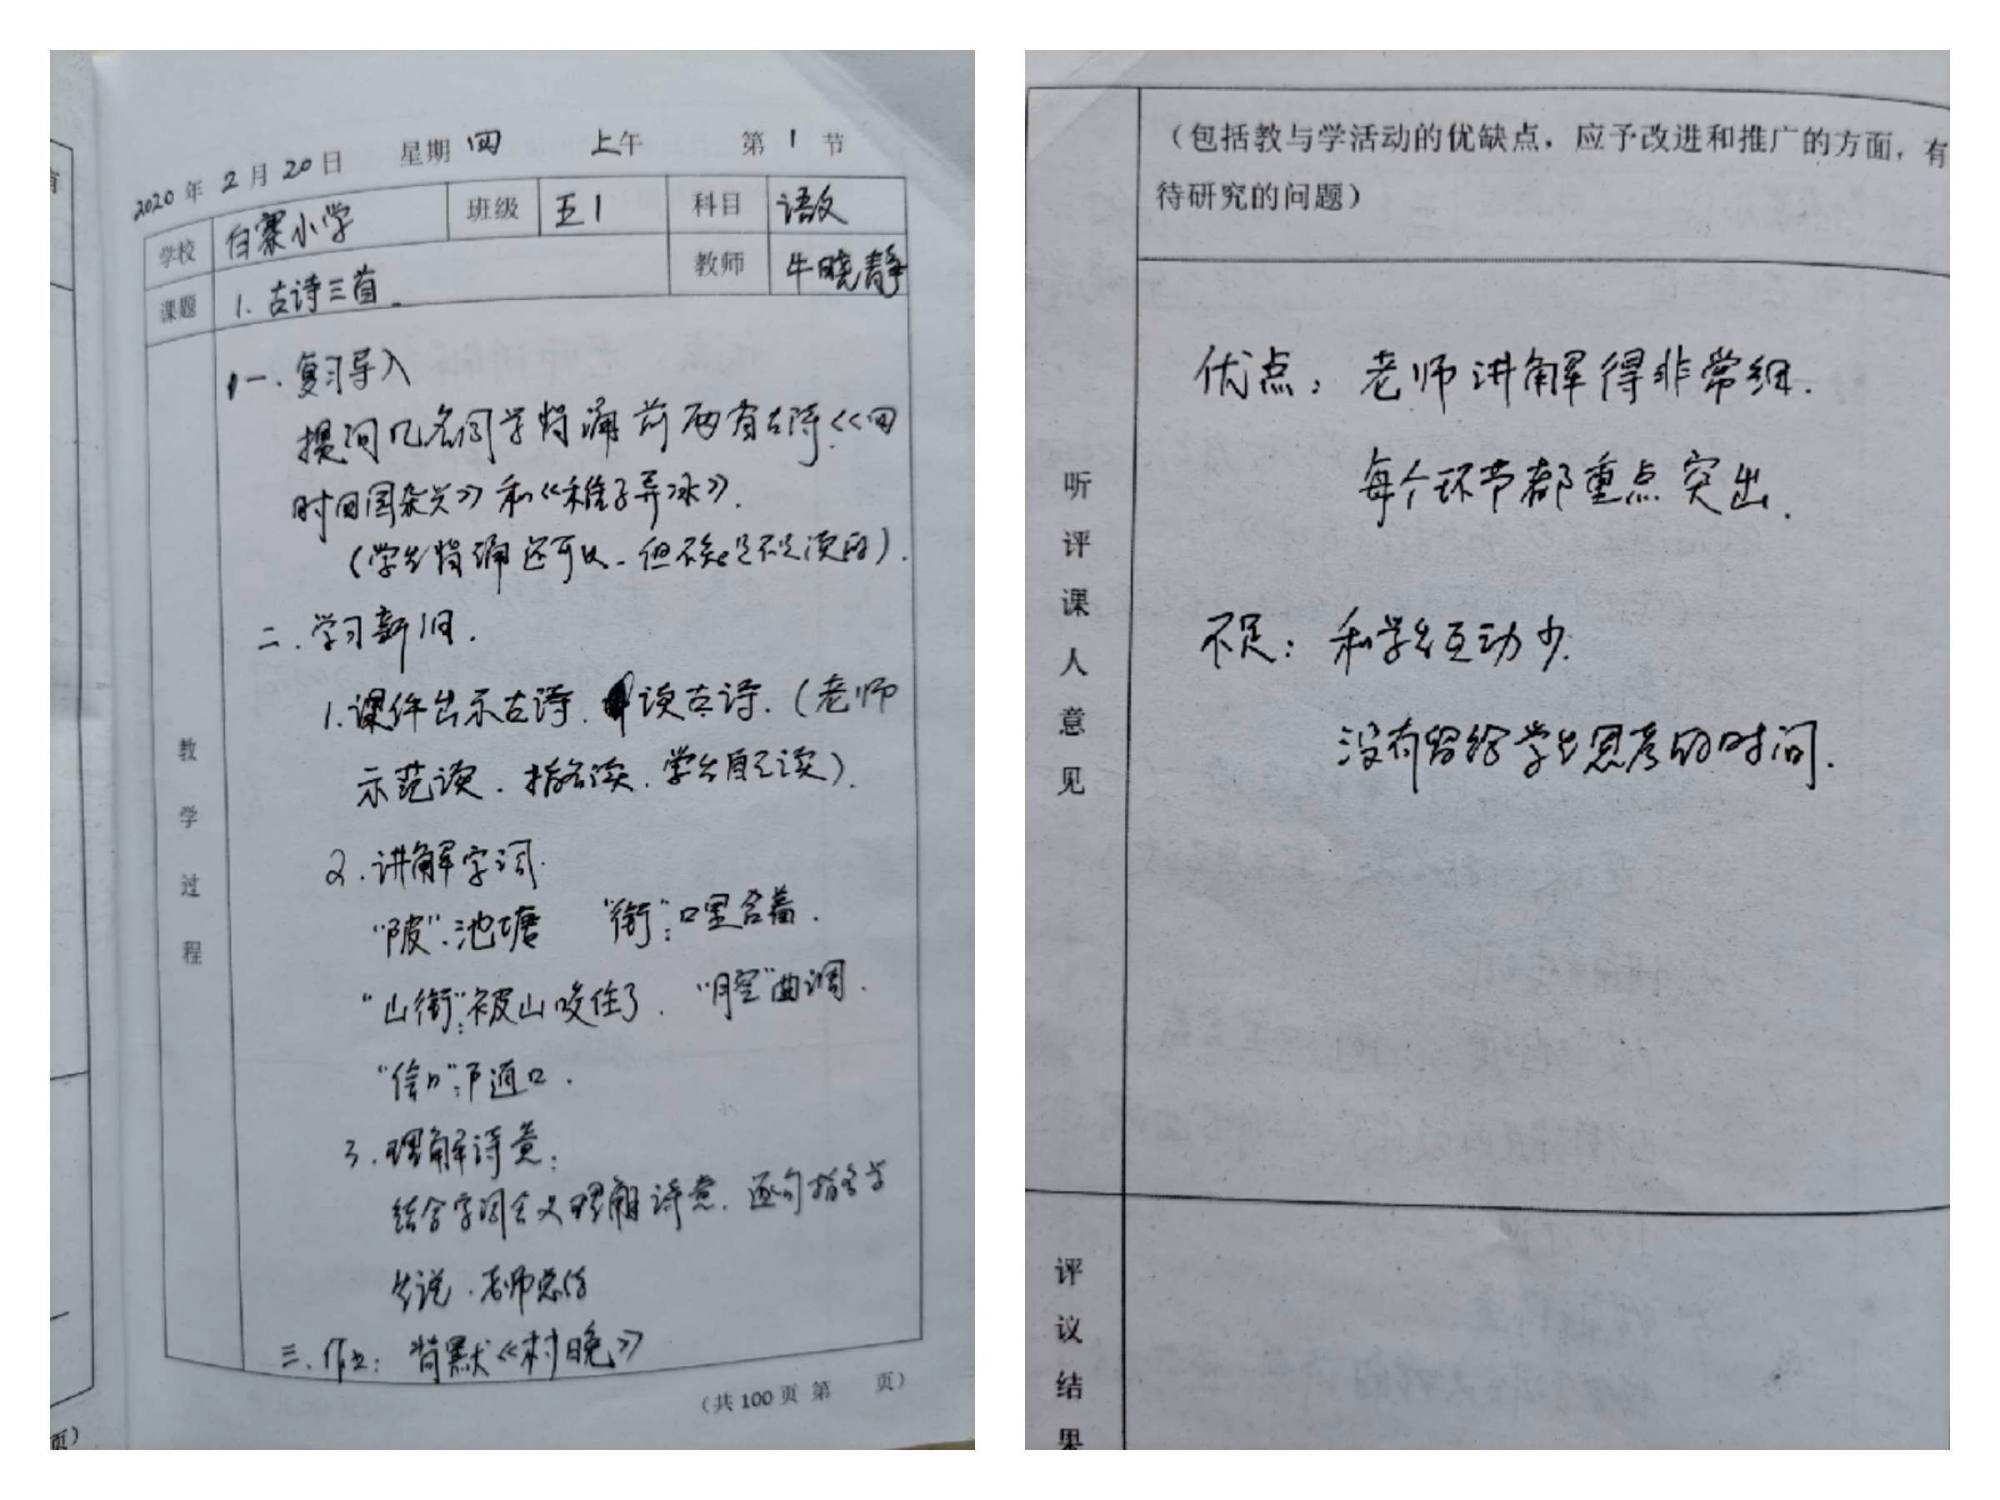 2020年2月20日 星期四 上午 第1节
学校 白寨小学 班级 五1 科目 语文
课题 1.古诗三首. 教师 牛晓静
教学过程
一.复习导入
提问几名同学背诵前两首古诗《四
时田园杂兴》和《稚子弄冰》.
(学生背诵还可以.但不是很
二.学习新旧.
1.课件出示古诗.读古诗.(老师
示范读.指名读.学生自己读).
2.讲解字词.
"陂":池塘 "衔":口里含着.
"山衔":被山咬住了. "腔"曲调.
"信口":随口.
3.理解诗意:
结合字词含义理解诗意.逐句指名学
生说.老师总结
三.作业:背默《村晚》
(共100页 第 页)
页)
(包括教与学活动的优缺点,应予改进和推广的方面,有
待研究的问题)
听评课人意见
优点:老师讲解得非常细.
每个环节都重点突出.
不足:和学生互动少.
没有留给学生思考的时间.
评议结果